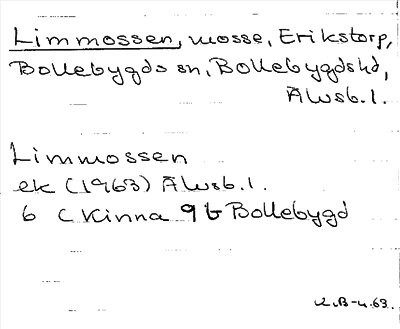 Limmossen, mosse, Erikstorp,
Bollebygds sn, Bollebygdshd,
Älvsb.l.
Limmossen
ek (1963) Älvsb.l.
6 C Kinna 9 b Bollebygd
63.